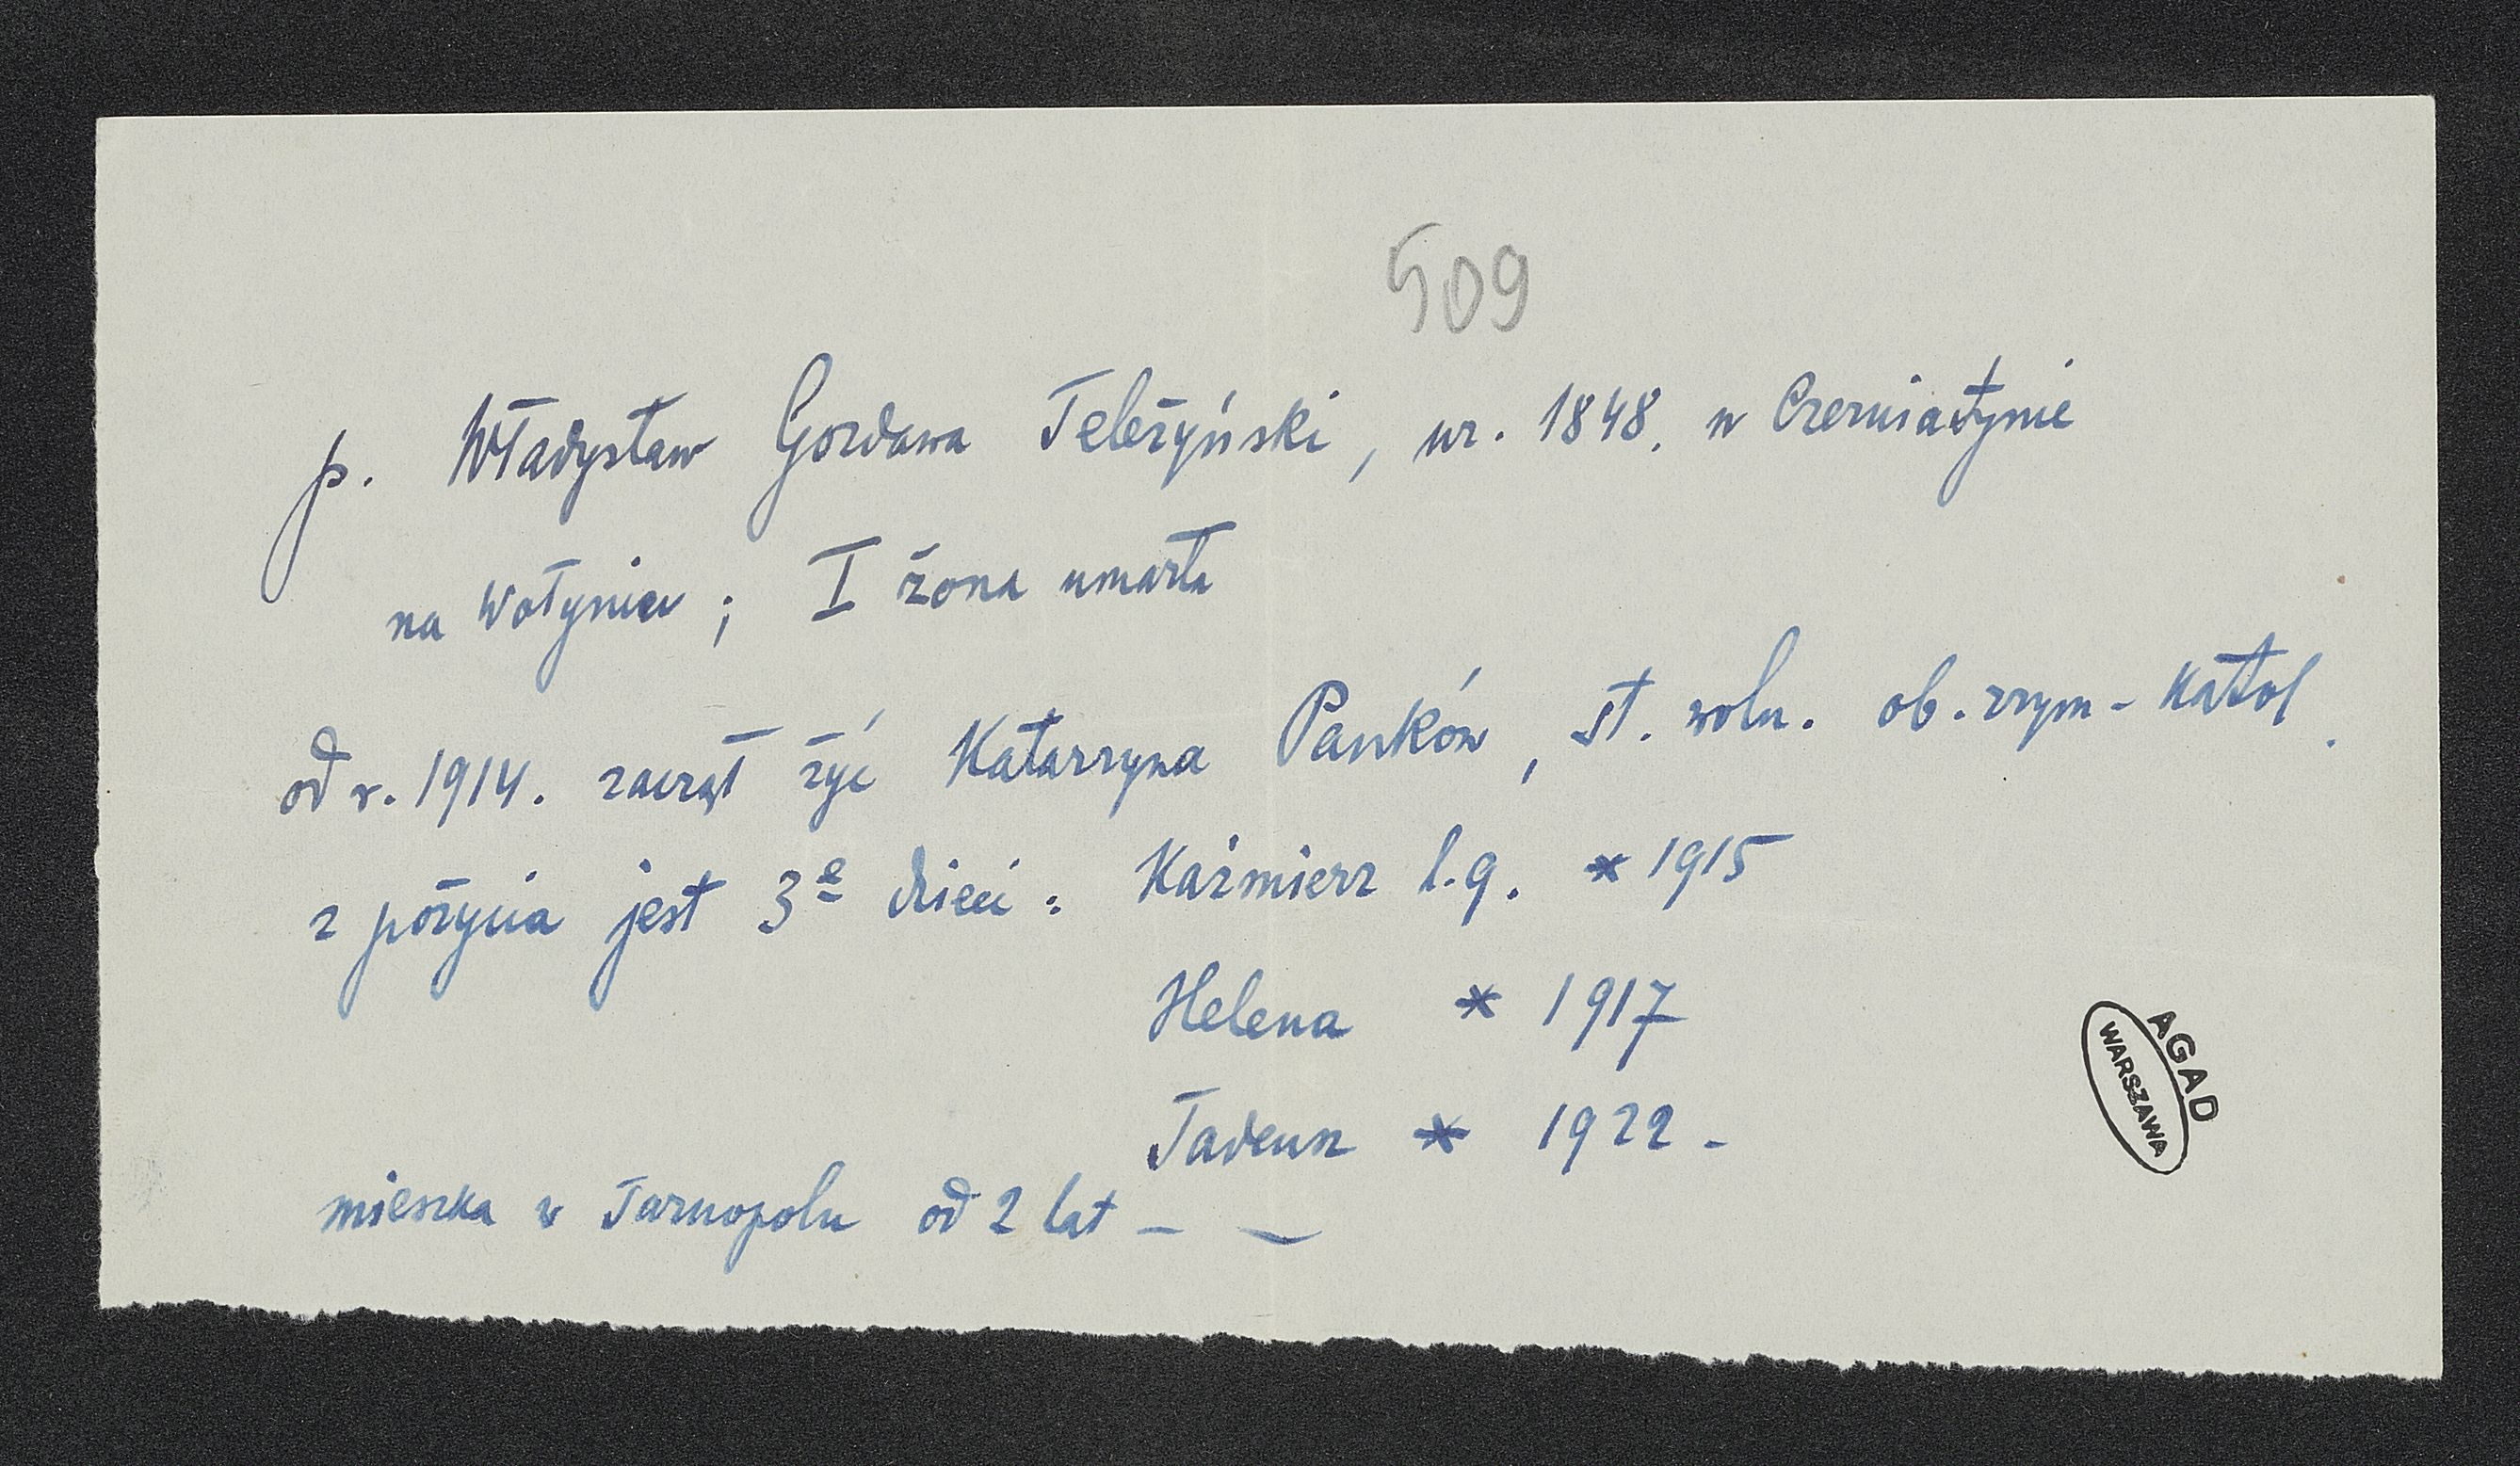 509
p. Władysław Gozdawa Teleżyński, ur. 1848. w Czerniatynie
na Wołyniu ; I żona umarła
od r. 1914. zaczął żyć Katarzyna Pańków, st. woln. ob. rzym-katol.
z pożycia jest 3e dzieci : Kaźmierz l. 9. * 1915
Helena * 1917
Tadeusz * 1922 -
mieszka w Tarnopolu od 2 lat -
AGAD
WARSZAWA